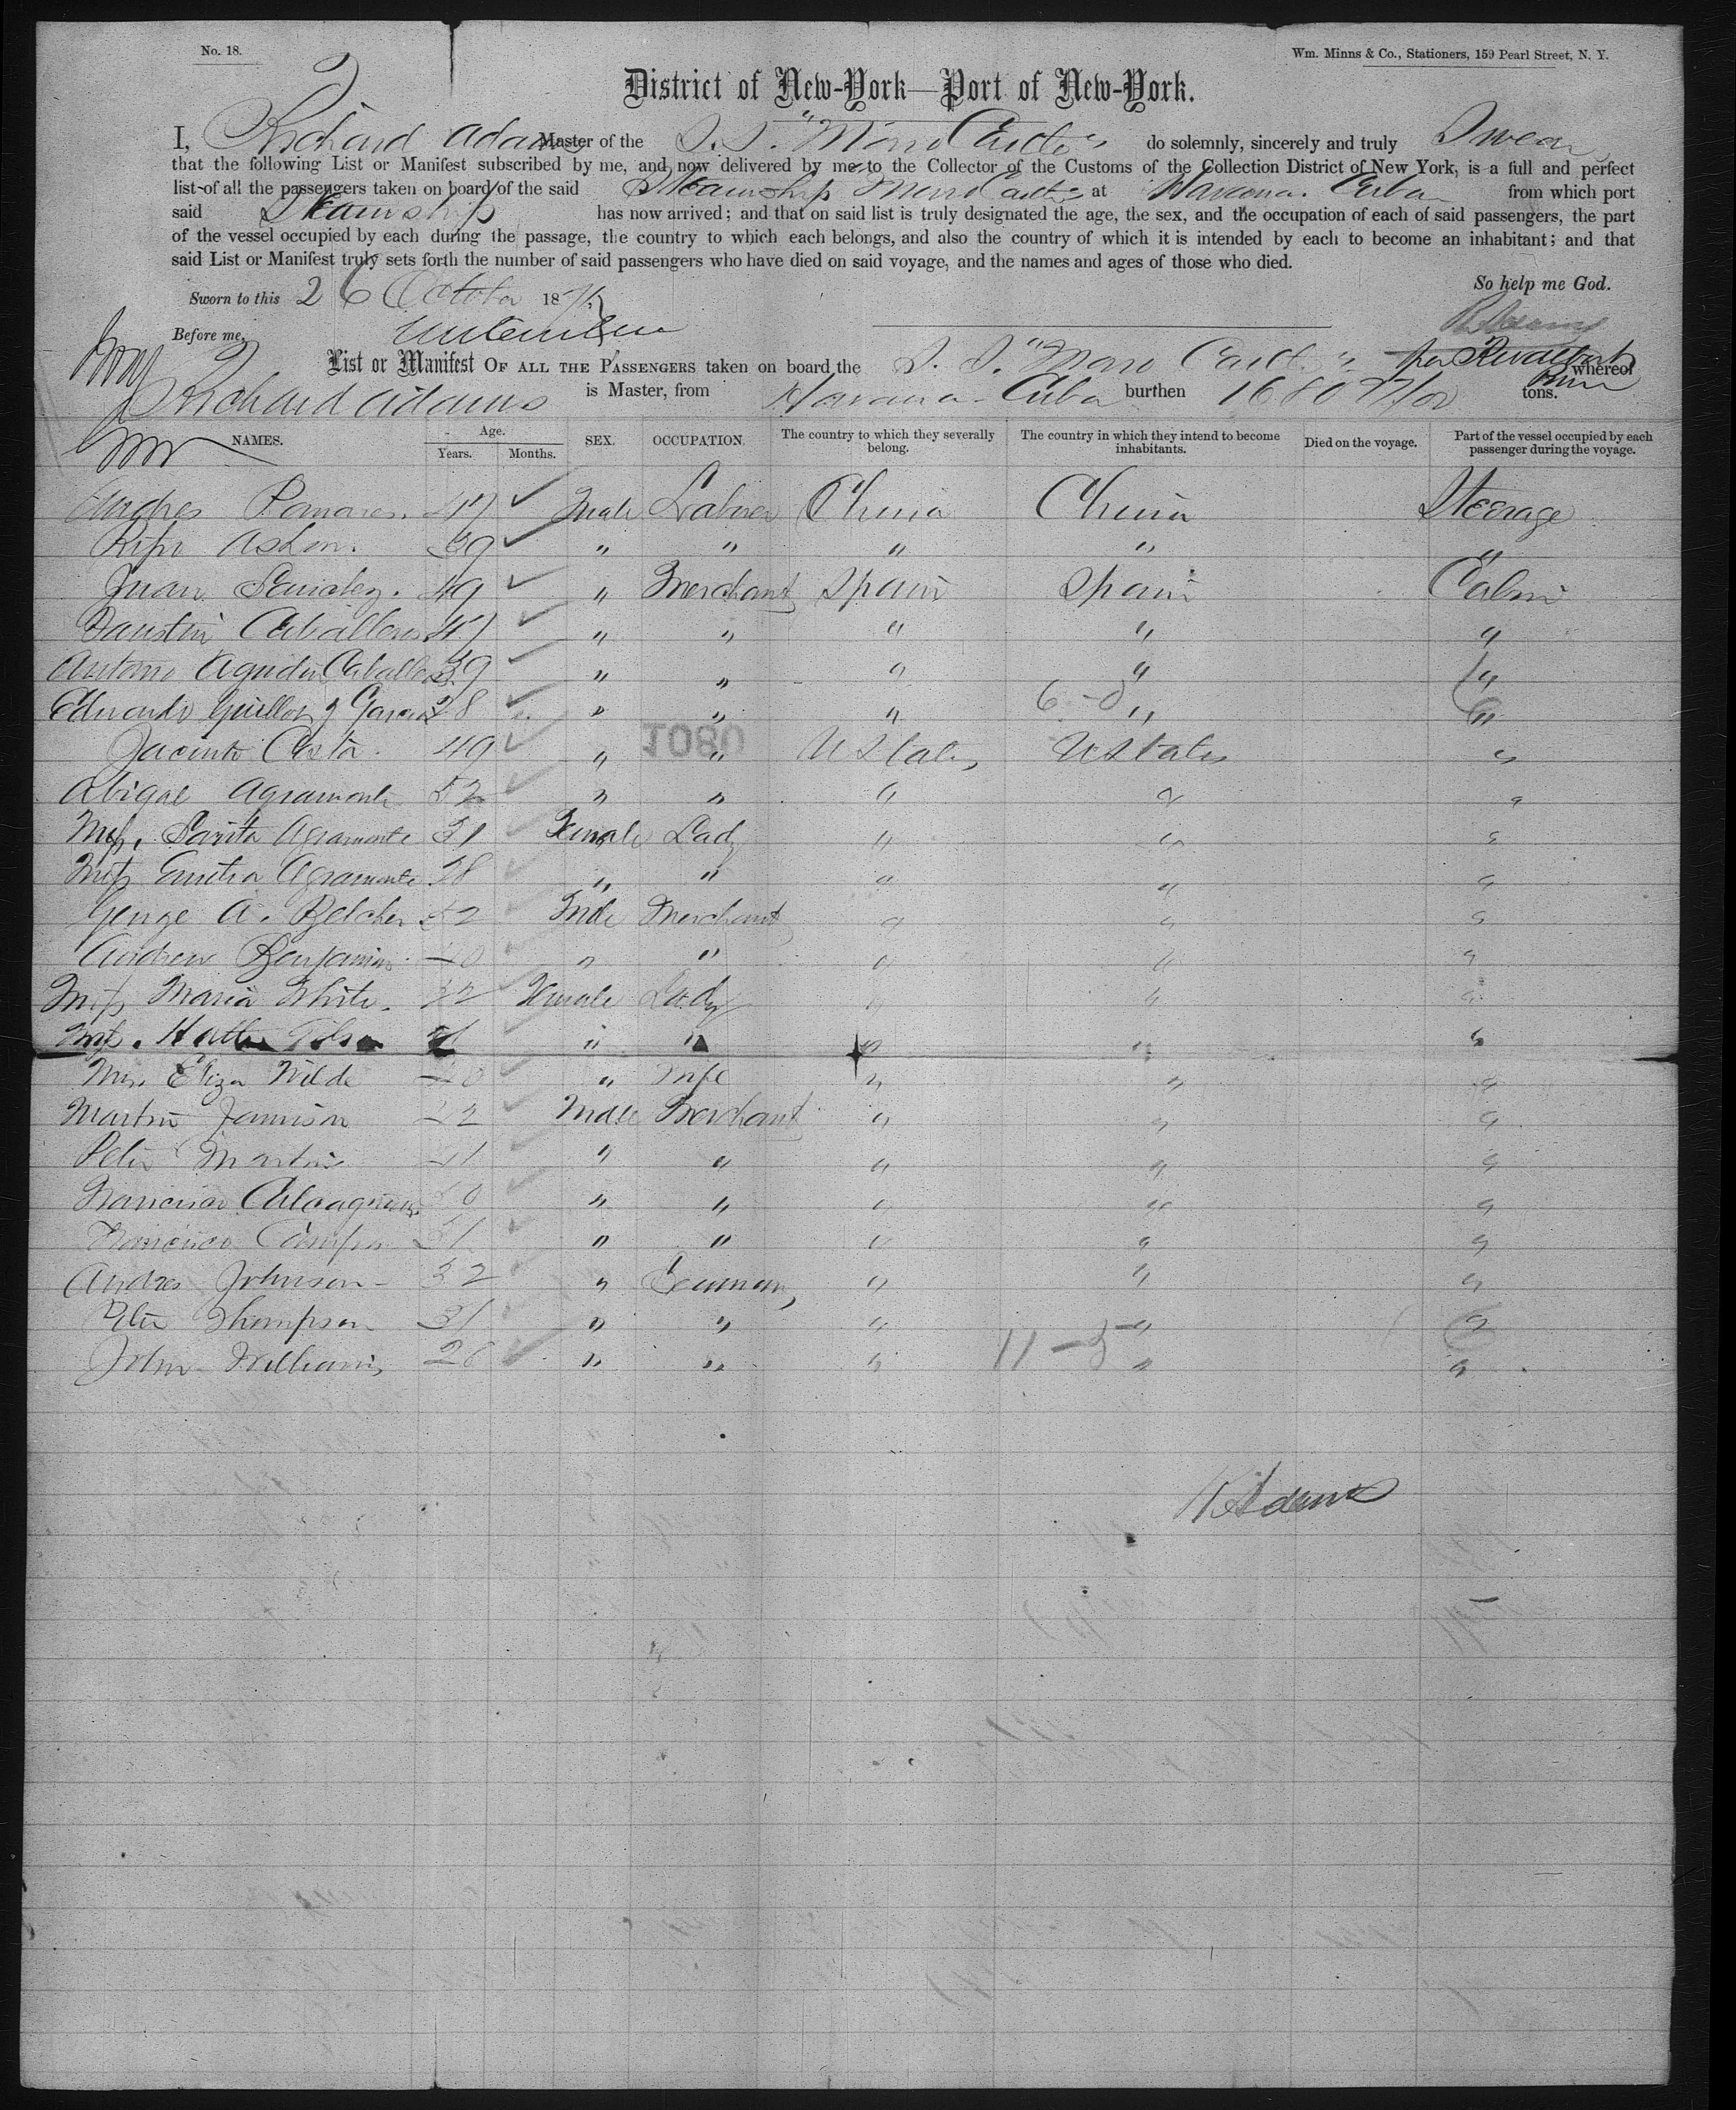 No. 18.
Wm. Minns & Co., Stationers, 159 Pearl Street, N. Y.
District of New-York—Port of New-York.
I, Richard Adams Master of the S.S. "Morro Castle" do solemnly, sincerely and truly Swear
that the following List or Manifest subscribed by me, and now delivered by me to the Collector of the Customs of the Collection District of New York, is a full and perfect
list of all the passengers taken on board of the said Steamship Morro Castle at Havana. Cuba from which port
said Steamship has now arrived; and that on said list is truly designated the age, the sex, and the occupation of each of said passengers, the part
of the vessel occupied by each during the passage, the country to which each belongs, and also the country of which it is intended by each to become an inhabitant; and that
said List or Manifest truly sets forth the number of said passengers who have died on said voyage, and the names and ages of those who died.
So help me God.
Sworn to this 26 October 187
Before me,
R Adams
List or Manifest OF ALL THE PASSENGERS taken on board the S. S. "Morro Castle" whereof
Richard Adams is Master, from Havana - Cuba burthen 1680 tons.
NAMES. Age. Years. Months. SEX. OCCUPATION. The country to which they severally belong. The country in which they intend to become inhabitants. Died on the voyage. Part of the vessel occupied by each passenger during the voyage.
Andres 47 Male Laborer China China Steerage
39 " " " " "
Juan 49 " Merchant Spain Spain Cabin
Faustin Caballero 47 " " " " "
Antonio Caballero 39 " " " " "
Eduardo Guillot y 28 " " " " "
6 - 0
Jacinto Costa 49 " " U States U States "
1080
Abigal Agramonte 52 " " " " "
Miss. Agramonte 31 Female Lady " " "
Miss Agramonte 28 " " " " "
George A. Belcher 52 Male Merchant " " "
Andrew Benjamin 40 " " " " "
Miss Maria White. 32 Female Lady " " "
" " " " "
Mrs Eliza Wilde 40 " Wife " " "
Martin Jamison 22 Male Merchant " " "
Peter Martin 41 " " " " "
Francisco " " " " "
Francisco 31 " " " " "
Andres Johnson 32 " Seaman " " "
Peter Thompson 31 " " " " "
John Williams 26 " " " " "
11 - 5
R Adams